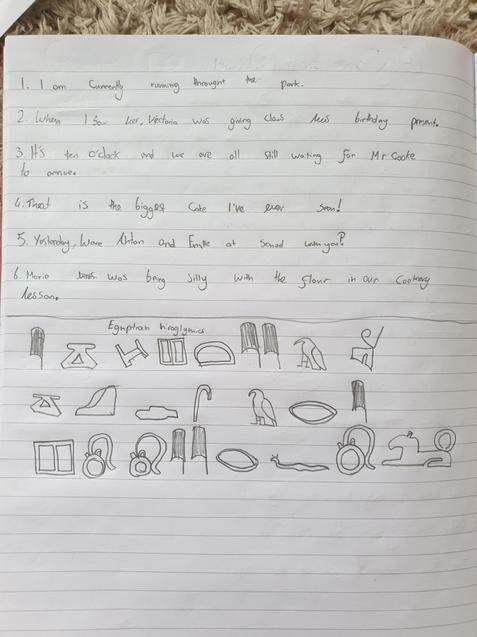 1. I am Currently running throught the park.
2 When I saw her, Victoria was giving Class his birthday present.
3. It's ten O'clock and we are all still waiting for Mr Cooke
to arrive.
4. That is the biggest Cake I've ever seen!
5. Yesterday, Were Ahlon and Emille at School with you?
6. Mario was being Silly with the flour in our Cookery
lesson.
Egyptian hiroglymics